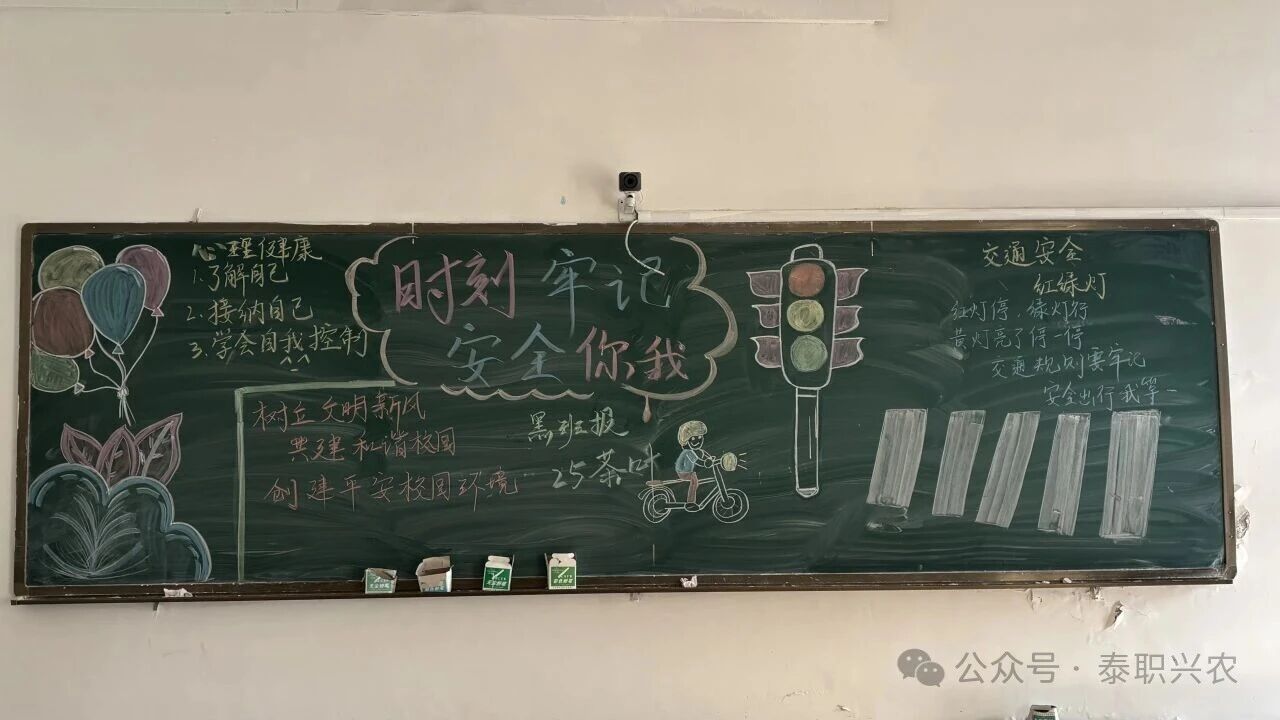 心理健康
1.了解自己
2.接纳自己
3.学会自我控制
时刻牢记
安全你我
树立文明新风
共建和谐校园
创建平安校园环境
黑班报
25茶叶
交通安全
红绿灯
红灯停,绿灯行
黄灯亮了停一停
交通规则要牢记
安全出行我第一
公众号·泰职兴农